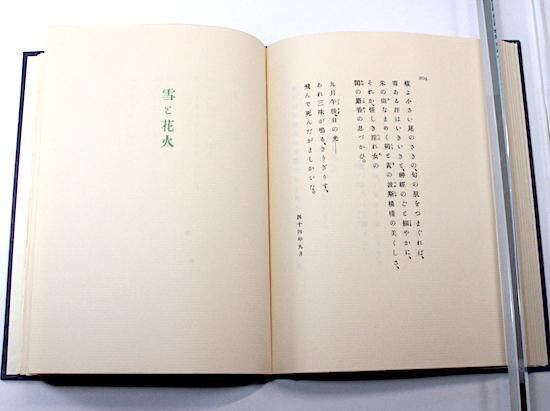 204
よ小さい尾のさきの、の肌をつまぐれば、
毒ある汗はいきいきと神經のごと細やかに、
朱の斑なまめく褐と黄の波斯模様の美くしさ、
それか、怪しき淫れ女の
閨の麝香の息づかひ。
九月午後、日の光――
あれ三味が鳴る、きりぎりす、
飛んで死んだがましかいな。
四十四年九月
雪と花火